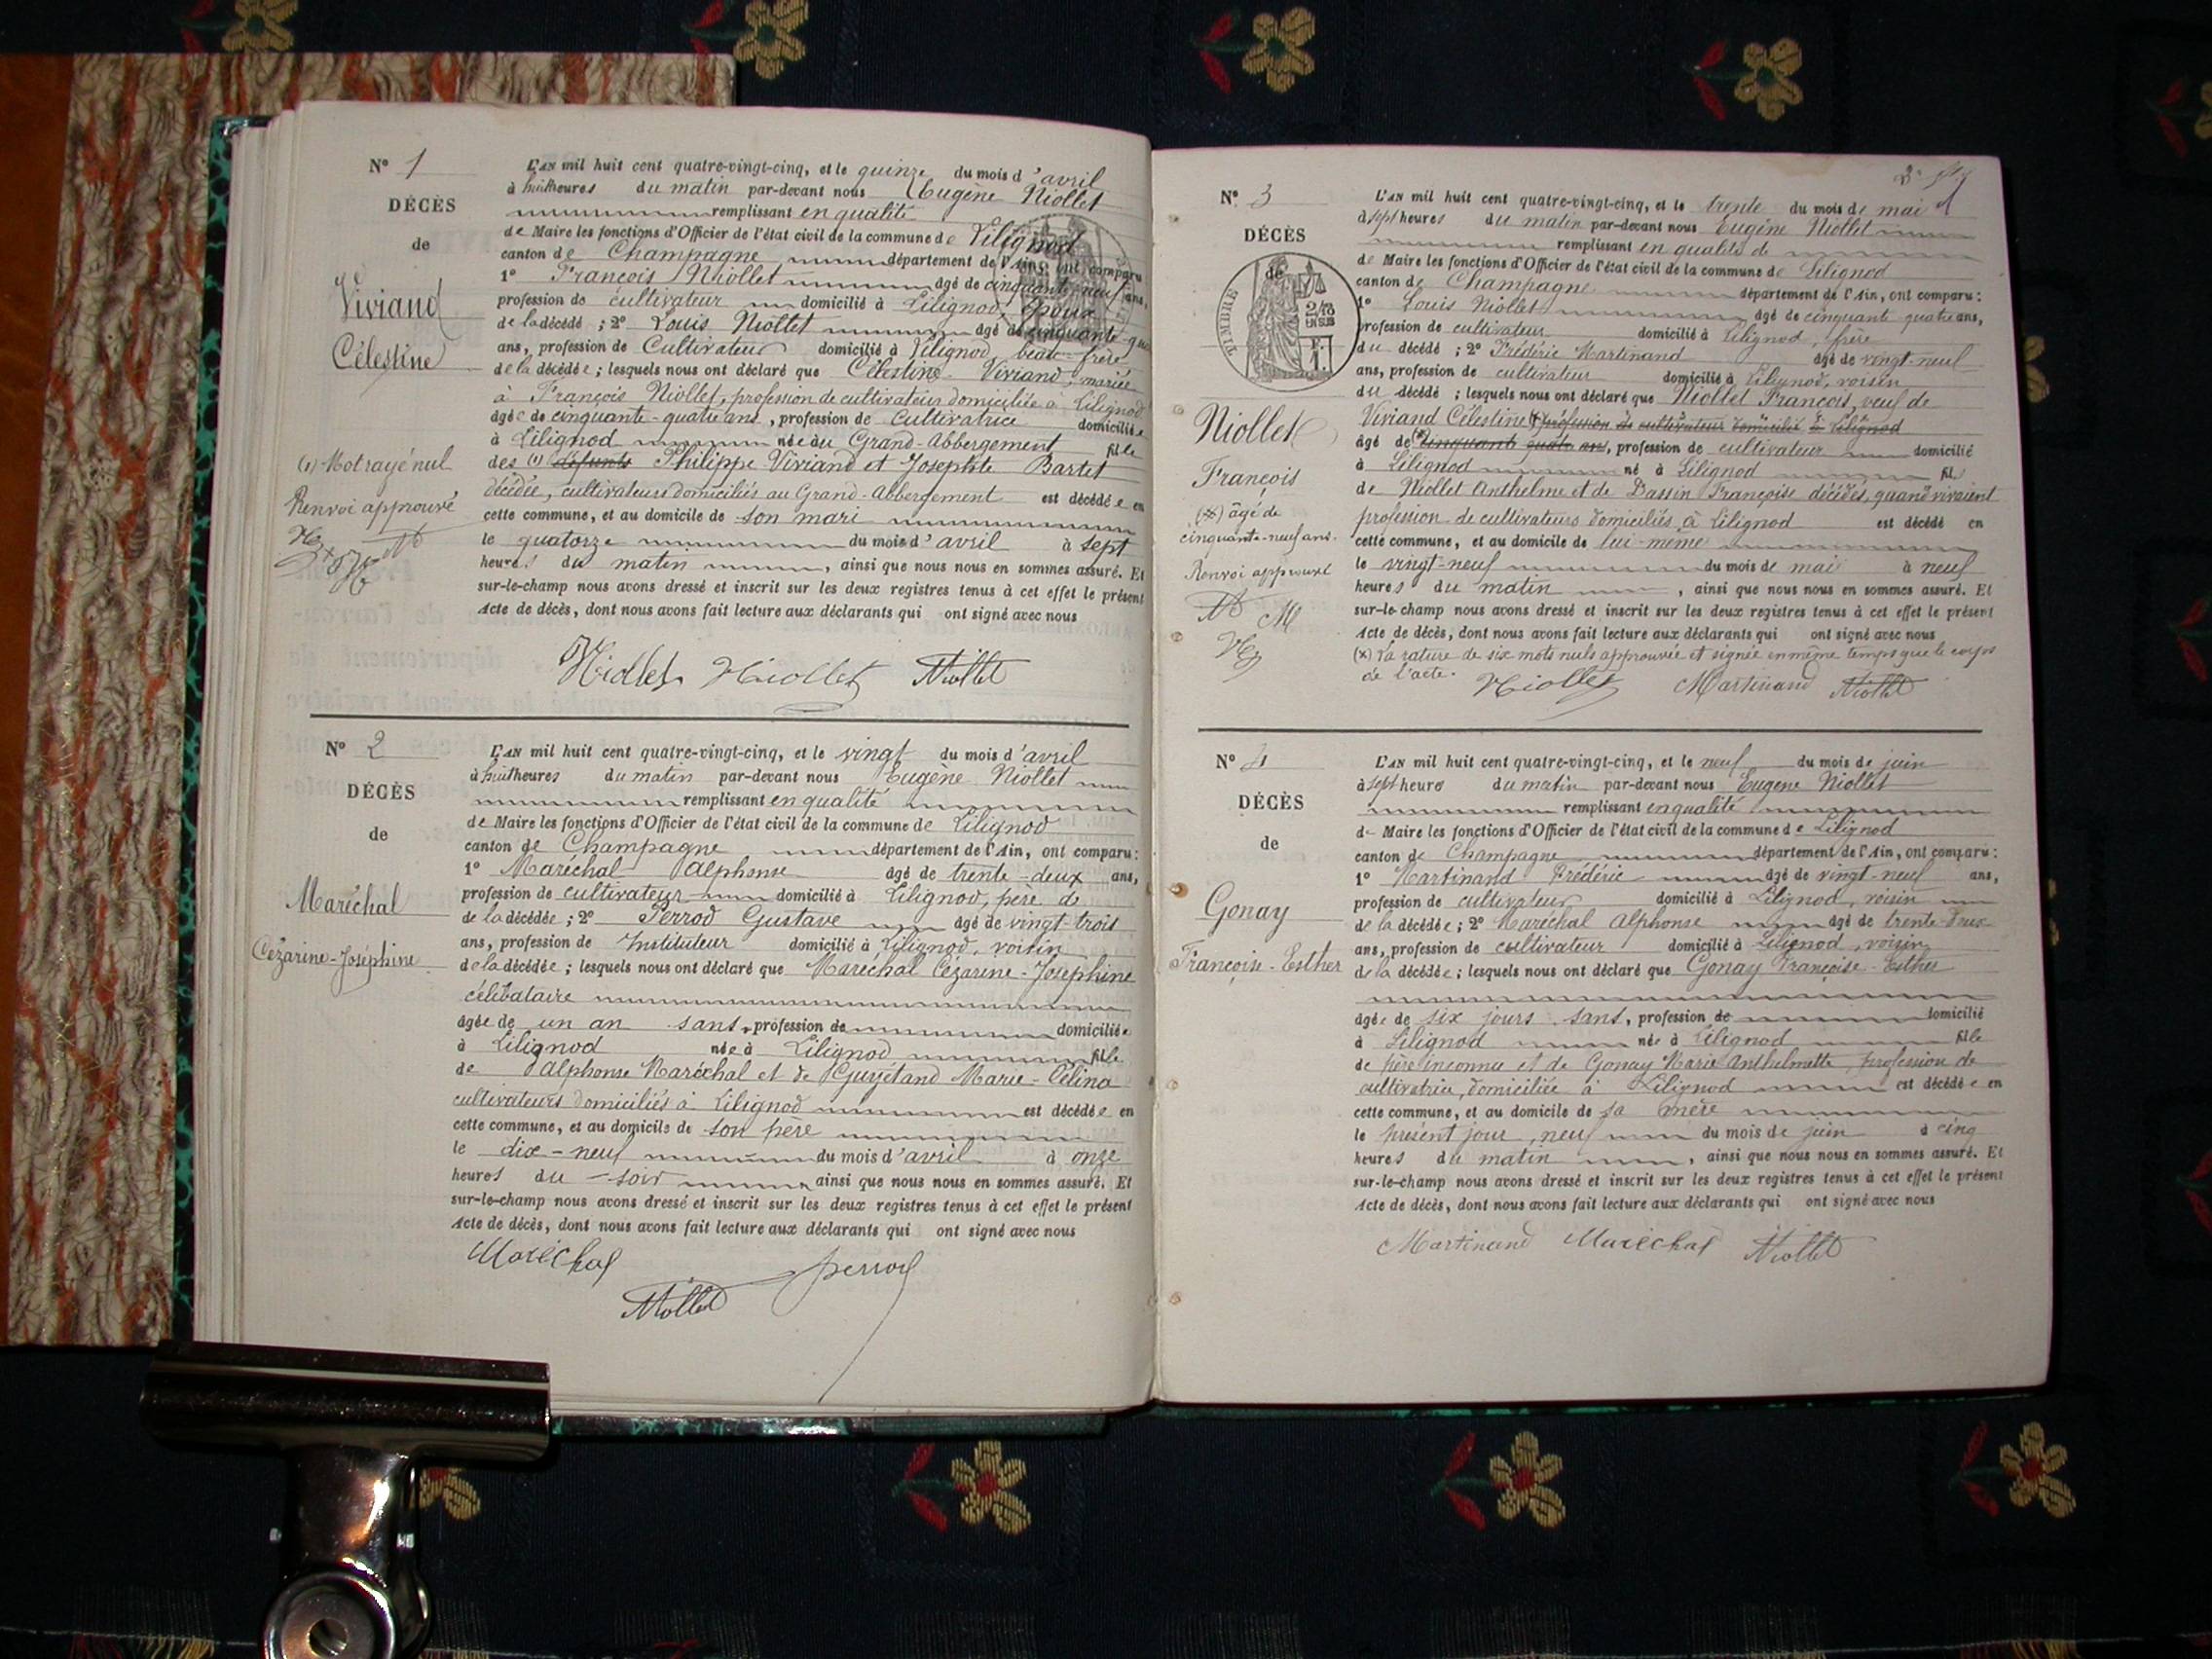 N° 1
DÉCÈS
de
Viviand
Célestine
(1) Mot rayé nul
Renvoi approuvé
L'AN mil huit cent quatre-vingt-cinq, et le quinze du mois d'avril
à huit heures du matin par-devant nous Eugène Niollet
remplissant en qualité
de Maire les fonctions d'Officier de l'état civil de la commune de Lilignod
canton de Champagne département de l'Ain, ont comparu
1° François Niollet âgé de cinquante-neuf ans,
profession de cultivateur domicilié à Lilignod, époux
de la décédé ; 2° Louis Niollet âgé de cinquante
ans, profession de Cultivateur domicilié à Lilignod, beau-frère
de la décédée ; lesquels nous ont déclaré que Célestine Viviand, mariée
à François Niollet, profession de cultivateur domiciliée à Lilignod
âgée de cinquante-quatre ans, profession de cultivatrice domiciliée
à Lilignod née au Grand-Abbergement fille
des (1) défunts Philippe Viviand et Josephte Bartet
décédée, cultivateurs domiciliés au Grand-Abbergement est décédée en
cette commune, et au domicile de son mari
le quatorze du mois d'avril à sept
heures du matin, ainsi que nous nous en sommes assuré. Et
sur-le-champ nous avons dressé et inscrit sur les deux registres tenus à cet effet le présent
Acte de décès, dont nous avons fait lecture aux déclarants qui ont signé avec nous
Niollet Niollet Niollet
N° 2
DÉCÈS
de
Maréchal
Cézarine-Joséphine
L'AN mil huit cent quatre-vingt-cinq, et le vingt du mois d'avril
à huit heures du matin par-devant nous Eugène Niollet
remplissant en qualité
de Maire les fonctions d'Officier de l'état civil de la commune de Lilignod
canton de Champagne département de l'Ain, ont comparu :
1° Maréchal Alphonse âgé de trente-deux ans,
profession de cultivateur domicilié à Lilignod, père de
de la décédée ; 2° Perrod Gustave âgé de vingt-trois
ans, profession de Instituteur domicilié à Lilignod, voisin
de la décédée ; lesquels nous ont déclaré que Maréchal Cézarine-Joséphine
célibataire
âgée de un an sans, profession de domiciliée
à Lilignod née à Lilignod fille
de Alphonse Maréchal et de Guyétand Marie-Célina
cultivateurs domiciliés à Lilignod est décédée en
cette commune, et au domicile de son père
le dix-neuf du mois d'avril à onze
heures du soir ainsi que nous nous en sommes assuré. Et
sur-le-champ nous avons dressé et inscrit sur les deux registres tenus à cet effet le présent
Acte de décès, dont nous avons fait lecture aux déclarants qui ont signé avec nous
Maréchal perrod
Niollet
N° 3
DÉCÈS
de
TIMBRE
Niollet
François
(**) âgé de
cinquante-neuf ans.
Renvoi approuvé
M
L'AN mil huit cent quatre-vingt-cinq, et le trente du mois de mai
à sept heures du matin par-devant nous Eugène Niollet
remplissant en qualité de
de Maire les fonctions d'Officier de l'état civil de la commune de Lilignod
canton de Champagne département de l'Ain, ont comparu :
1° Louis Niollet âgé de cinquante quatre ans,
profession de cultivateur domicilié à Lilignod, frère
du décédé ; 2° Frédéric Martinand âgé de vingt-neuf
ans, profession de cultivateur domicilié à Lilignod, voisin
du décédé ; lesquels nous ont déclaré que Niollet François, veuf de
Viviand Célestine (*) profession de cultivateur domicilié à Lilignod
âgé de (**) cinquante quatre ans, profession de cultivateur domicilié
à Lilignod né à Lilignod fils
de Niollet Anthelme et de Bassin Françoise décédés, quand vivaient
profession de cultivateurs domiciliés à Lilignod est décédé en
cette commune, et au domicile de lui-même
le vingt-neuf du mois de mai à neuf
heures du matin, ainsi que nous nous en sommes assuré. Et
sur-le-champ nous avons dressé et inscrit sur les deux registres tenus à cet effet le présent
Acte de décès, dont nous avons fait lecture aux déclarants qui ont signé avec nous
(*) La rature de six mots nuls approuvée et signée en même temps que le corps
de l'acte. Niollet Martinand Niollet
N° 4
DÉCÈS
de
Gonay
Françoise-Esther
L'AN mil huit cent quatre-vingt-cinq, et le neuf du mois de juin
à sept heures du matin par-devant nous Eugène Niollet
remplissant en qualité
de Maire les fonctions d'Officier de l'état civil de la commune de Lilignod
canton de Champagne département de l'Ain, ont comparu :
1° Martinand Frédéric âgé de vingt-neuf ans,
profession de cultivateur domicilié à Lilignod, voisin
de la décédée ; 2° Maréchal Alphonse âgé de trente-deux
ans, profession de cultivateur domicilié à Lilignod, voisin
de la décédée ; lesquels nous ont déclaré que Gonay Françoise-Esther
âgée de six jours sans, profession de domicilié
à Lilignod née à Lilignod fille
de père inconnu et de Gonay Marie Anthelmette, profession de
cultivatrice, domiciliée à Lilignod est décédée en
cette commune, et au domicile de sa mère
le présent jour, neuf du mois de juin à cinq
heures du matin, ainsi que nous nous en sommes assuré. Et
sur-le-champ nous avons dressé et inscrit sur les deux registres tenus à cet effet le présent
Acte de décès, dont nous avons fait lecture aux déclarants qui ont signé avec nous
Martinand Maréchal Niollet